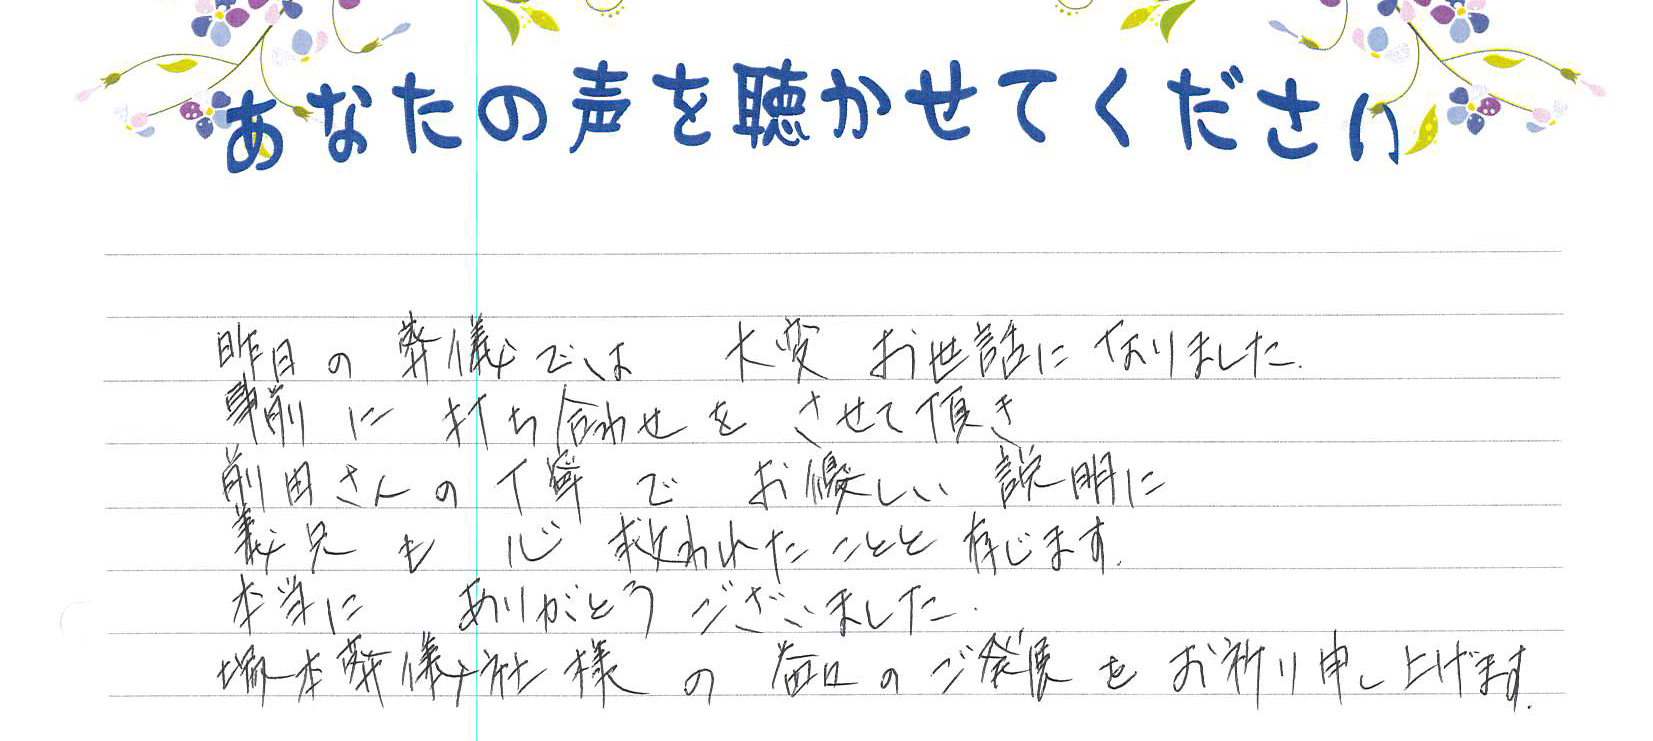 あなたの声を聴かせてください
昨日の葬儀では 大変 お世話に なりました.
事前に 打ち合わせを させて頂き
前田さんの 丁寧で お優しい 説明に
義兄も 心 救われたことと 存じます.
本当に ありがとう ございました.
塚本葬儀社様の 益々のご発展を お祈り申し上げます.